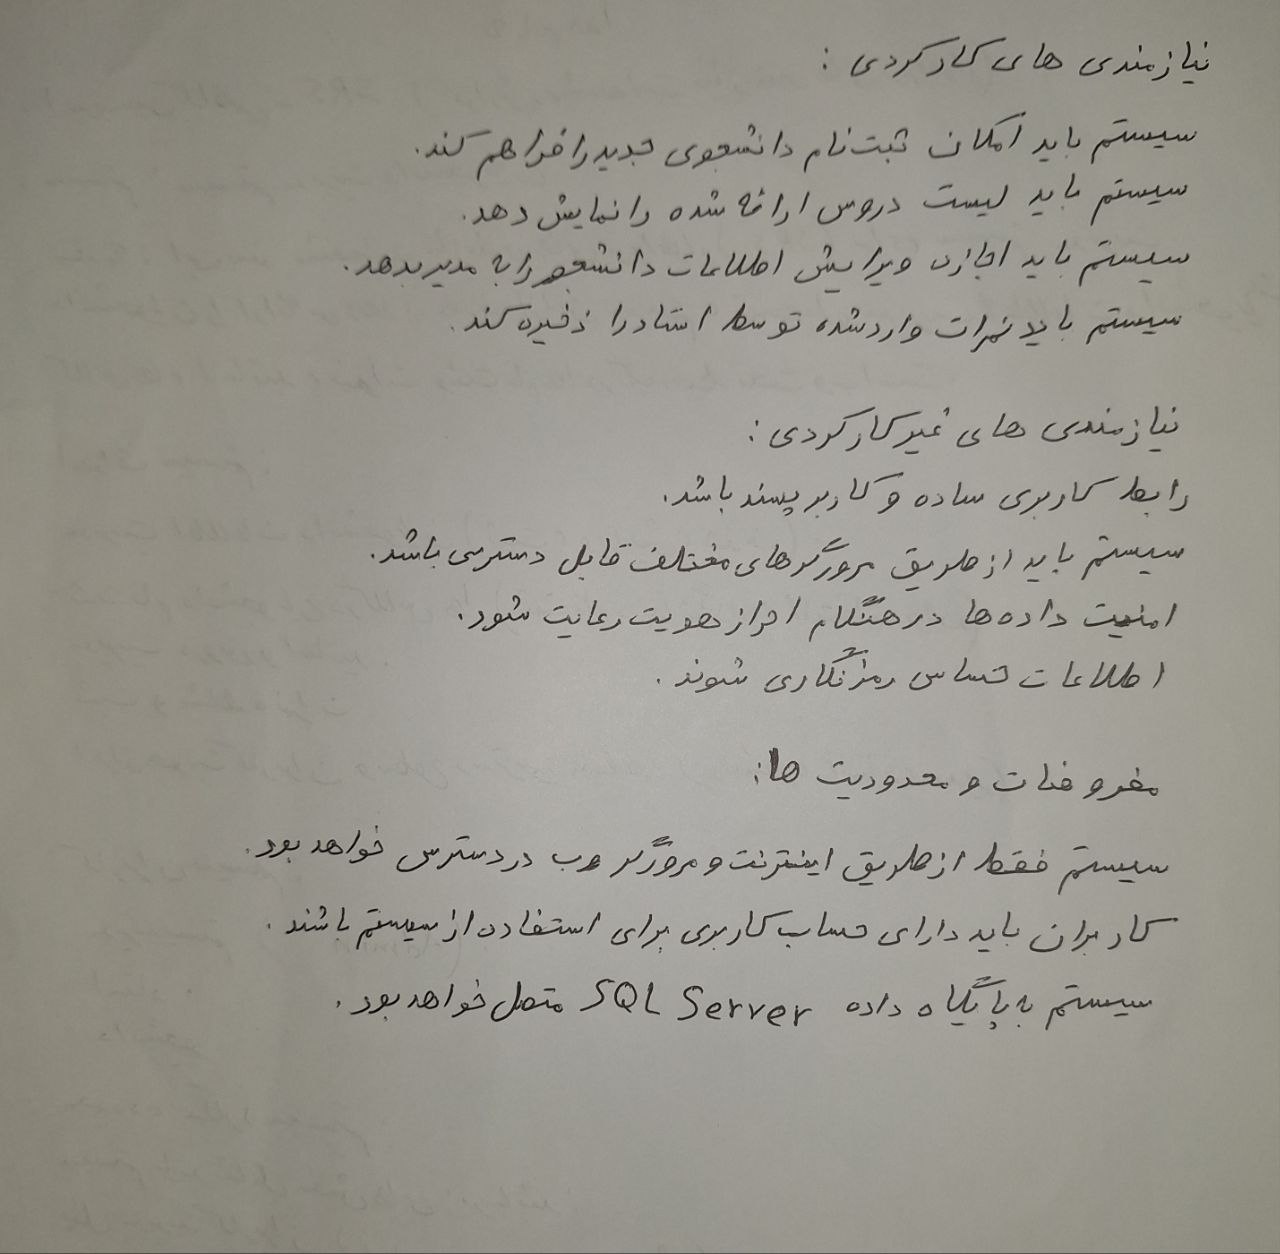 نیازمندی های کارکردی :
سیستم باید امکان ثبت نام دانشجوی جدید را فراهم کند.
سیستم باید لیست دروس ارائه شده را نمایش دهد.
سیستم باید اجازه ویرایش اطلاعات دانشجو را به مدیر بدهد.
سیستم باید نمرات وارد شده توسط استاد را ذخیره کند.
نیازمندی های غیر کارکردی :
رابط کاربری ساده و کاربر پسند باشد.
سیستم باید از طریق مرورگرهای مختلف قابل دسترسی باشد.
امنیت داده ها در هنگام احراز هویت رعایت شود.
اطلاعات حساس رمزنگاری شوند.
مفروضات و محدودیت ها:
سیستم فقط از طریق اینترنت و مرورگر وب در دسترس خواهد بود.
کاربران باید دارای حساب کاربری برای استفاده از سیستم باشند.
سیستم به پایگاه داده SQL Server متصل خواهد بود.